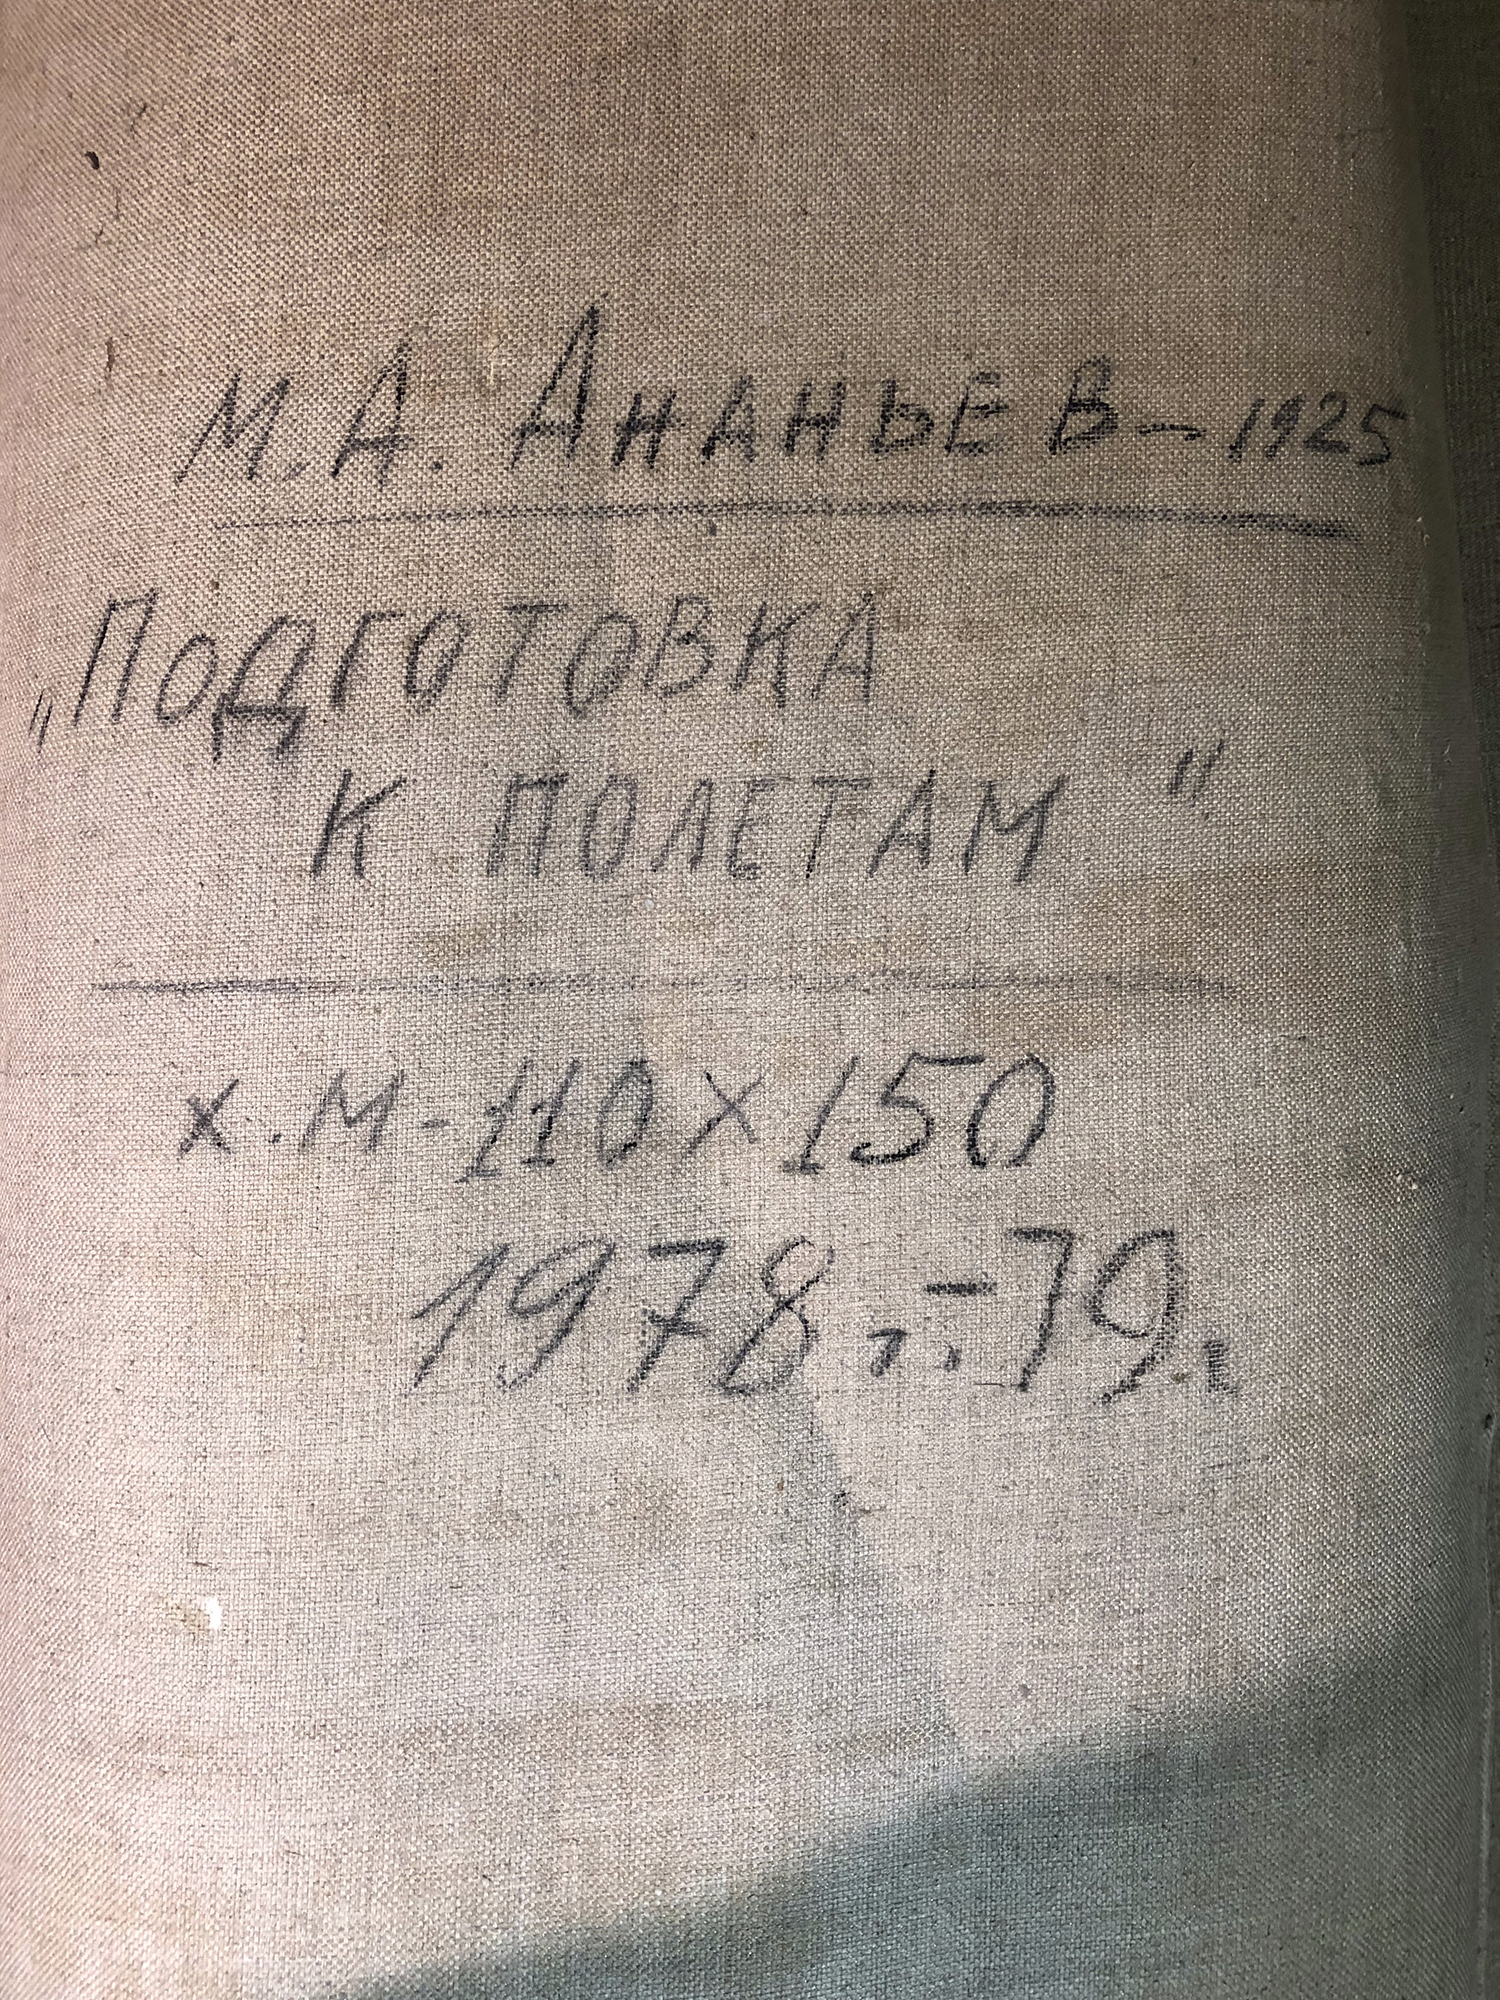 М. А. Ананьев – 1925
„Подготовка
к полетам"
х. м - 110 х 150
1978 г. - 79 г.